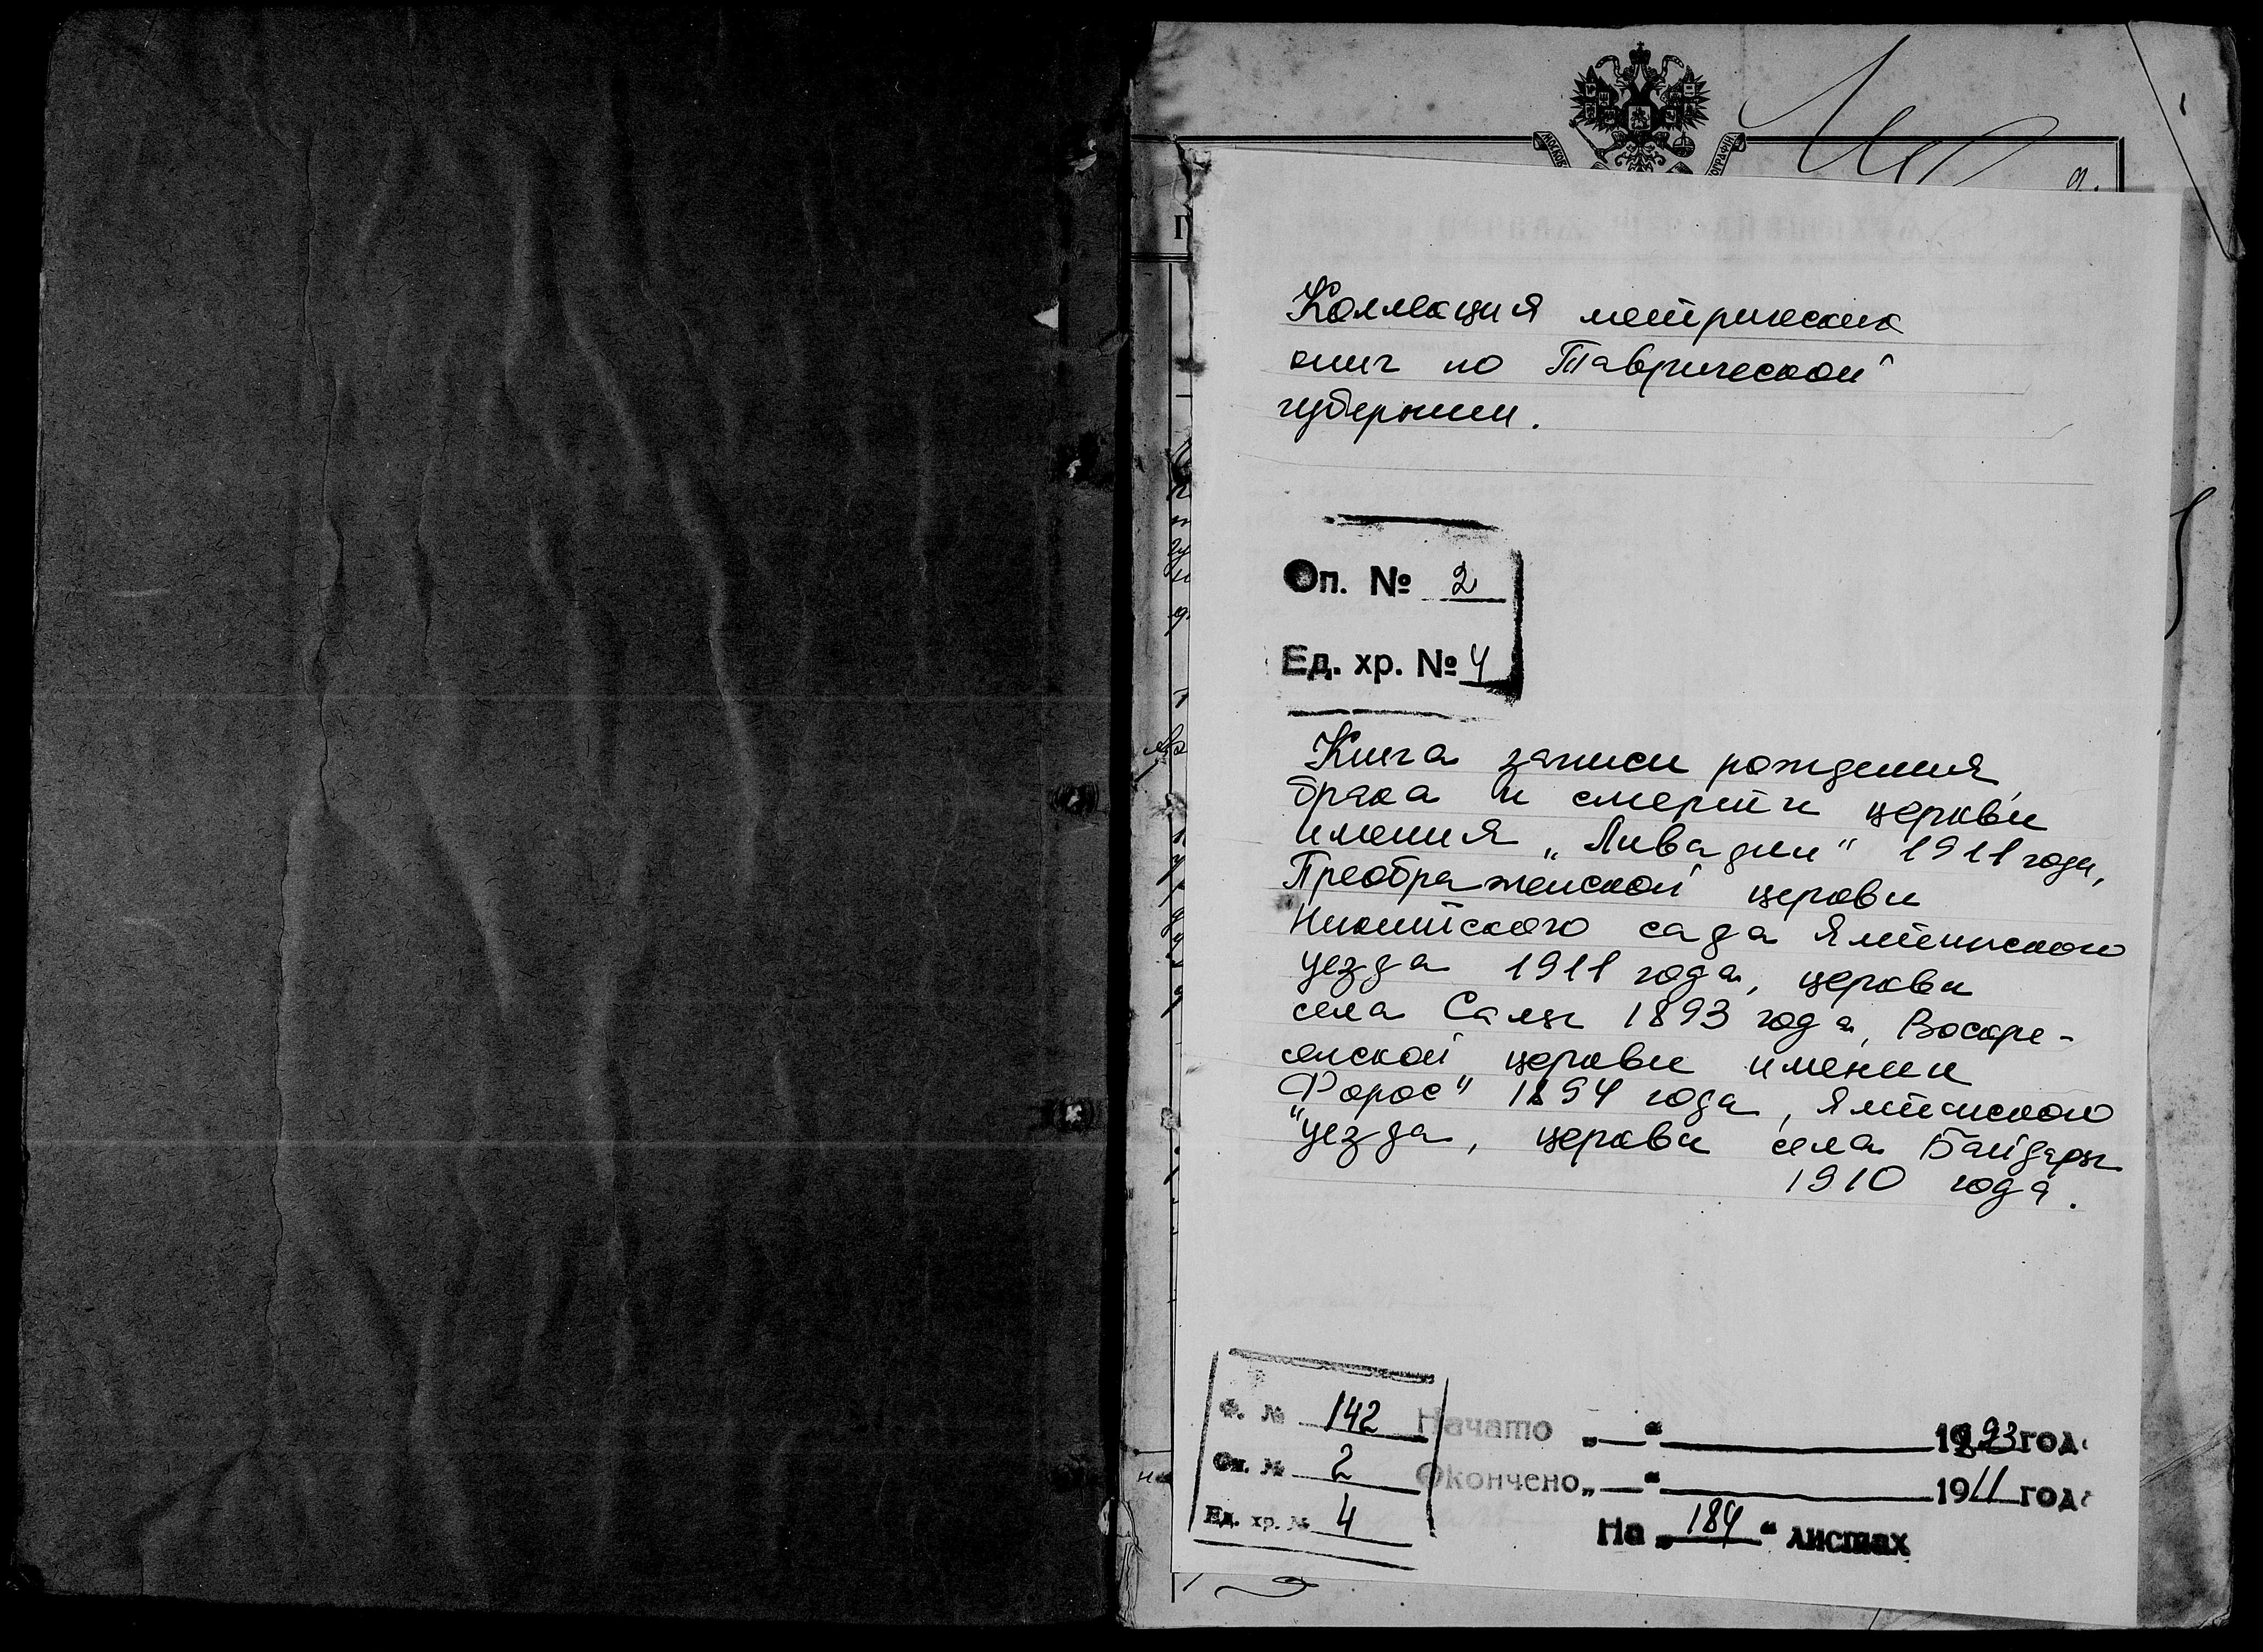 Коллекция метрических
книг по Таврической
губернии.
Оп. № 2
Ед. хр. № 4
Книга записи рождения,
брака и смерти церкви
имения „Ливадии" 1911 года,
Преображенской церкви
Никитского сада Ялтинского
уезда 1911 года, церкви
села Салы 1893 года, Воскре-
сенской церкви имении
„Форос" 1894 года, Ялтинского
уезда, церкви села Байдары
1910 года.
Ф. № 142
Оп. № 2
Ед. хр. № 4
Начато „—“ 1893 год
Окончено „—“ 1911 год
На „184“ листах